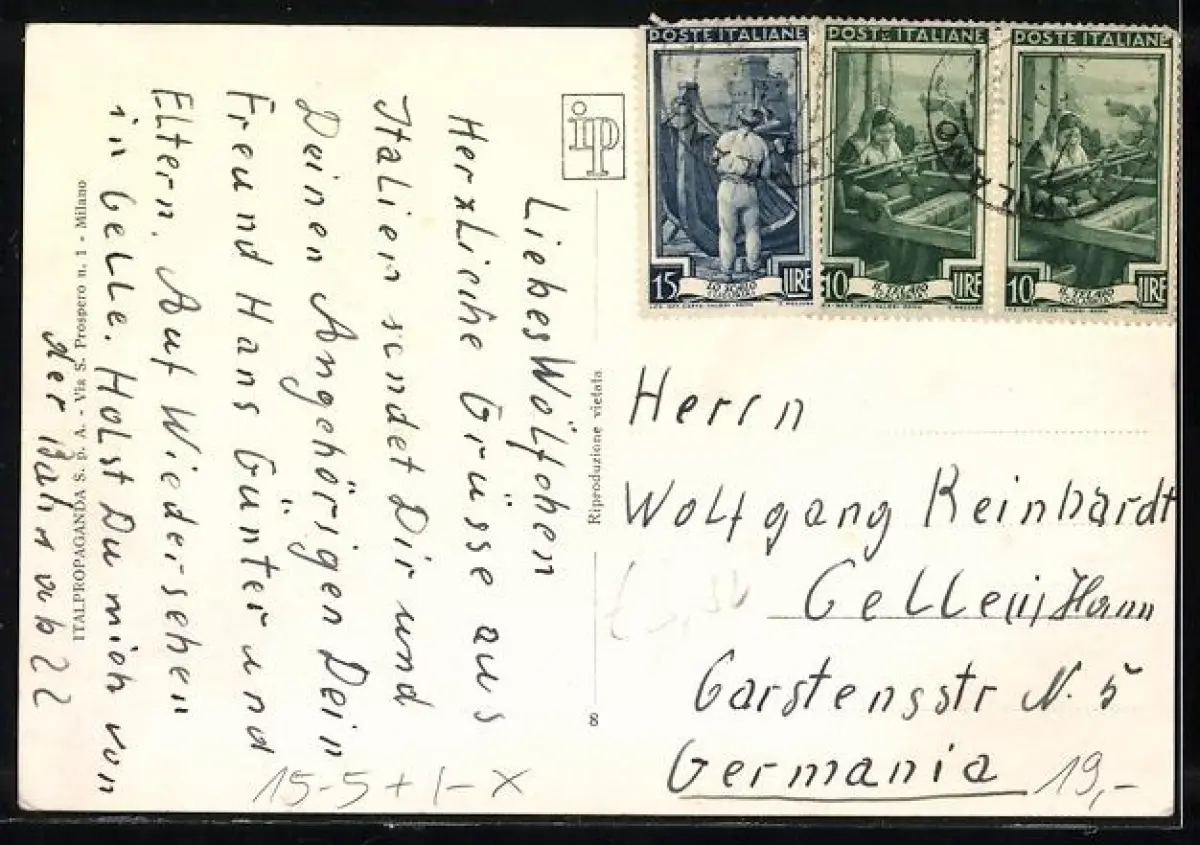 Liebes Wölfchen
Herzliche Grüsse aus
Italien sendet Dir und
Deinen Angehörigen Dein
Freund Hans Günter und
Eltern. Auf Wiedersehen
in Celle. Holst Du mich von
der Bahn ab ??
ITALPROPAGANDA S. p. A. - Via S. Prospero n. 1 - Milano
ip
Riproduzione vietata
8
POSTE ITALIANE
15 LIRE
POSTE ITALIANE
10 LIRE
IL TELAIO
POSTE ITALIANE
10 LIRE
IL TELAIO
MILANO
Herrn
Wolfgang Reinhardt
Celle (i) Hann
Carstensstr N. 5
Germania
19,-
15-5+1-X